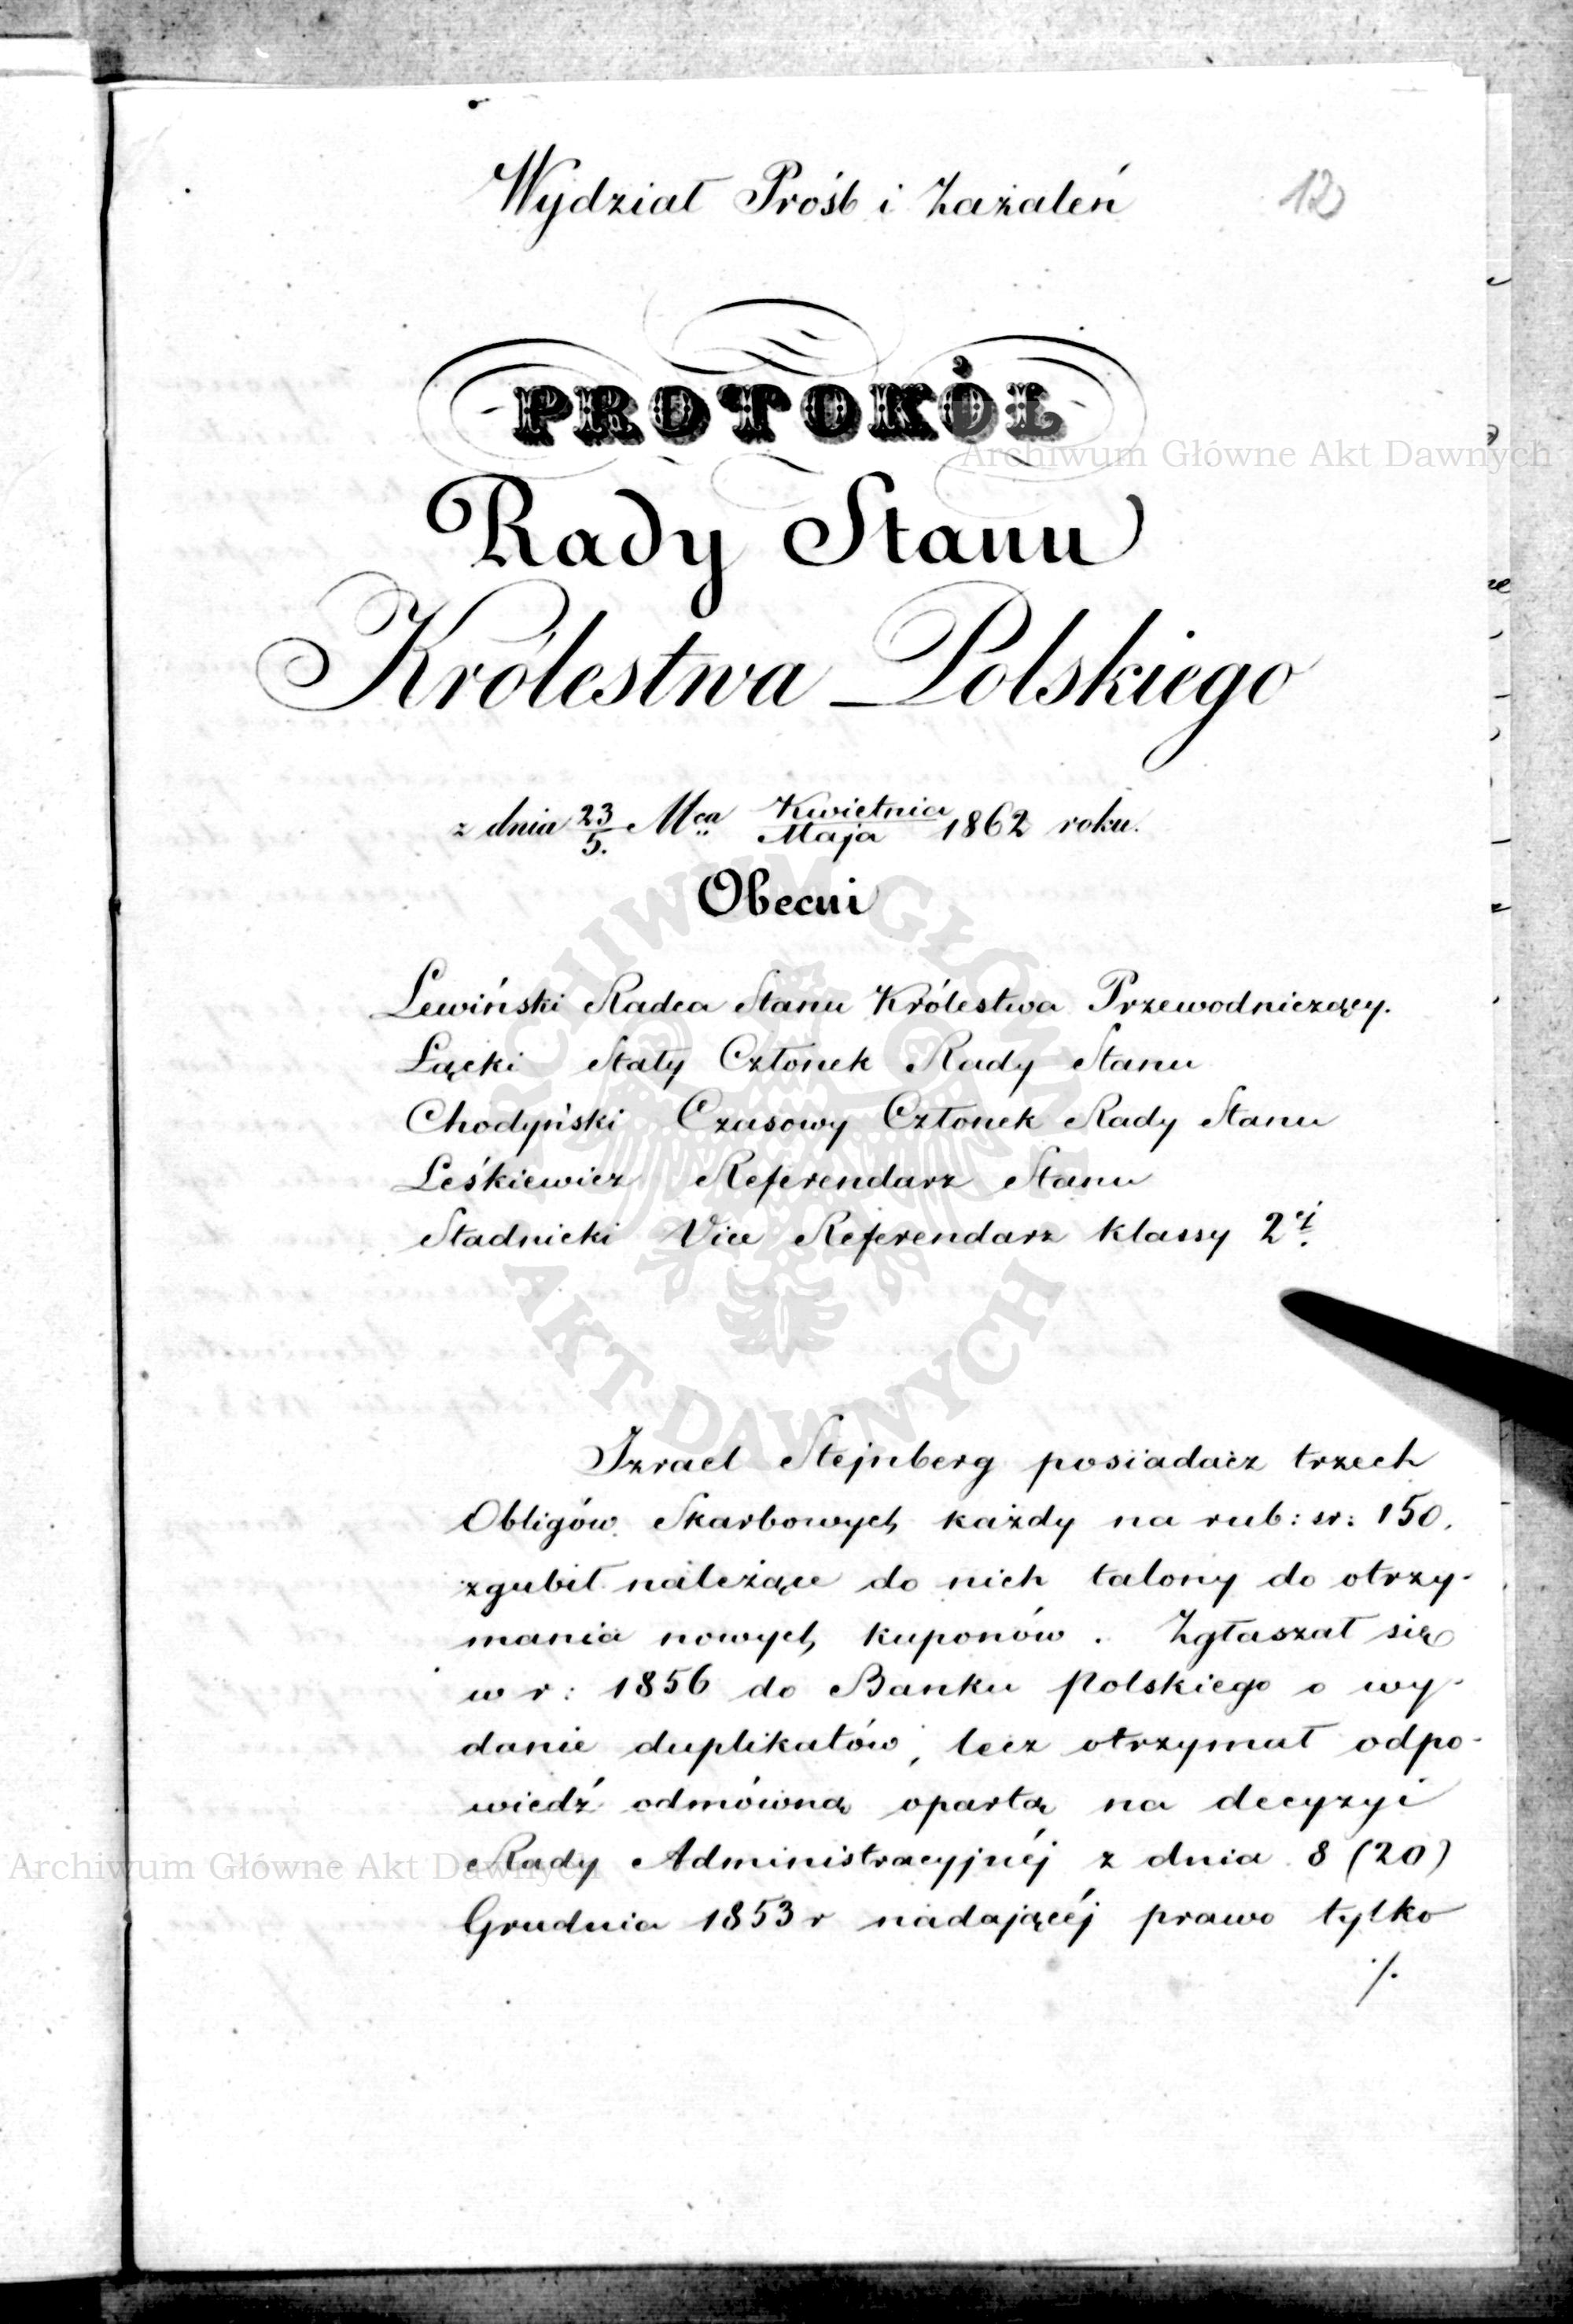 Wydział Próśb i Zażaleń
12
PROTOKÓŁ
Archiwum Główne Akt Dawnych
Rady Stanu
Królestwa Polskiego
z dnia 23/5. Mca Kwietnia/Maja 1862 roku.
Obecni
Lewiński Radca Stanu Królestwa Przewodniczący.
Łącki Stały Członek Rady Stanu
Chodyński Czasowy Członek Rady Stanu
Leśkiewicz Referendarz Stanu
Stadnicki Vice Referendarz klassy 2ej.
ARCHIWUM GŁÓWNE
AKT DAWNYCH
Izrael Stejnberg posiadacz trzech
Obligów Skarbowych każdy na rub: sr: 150.
zgubił należące do nich talony do otrzy-
mania nowych kuponów. Zgłaszał się
w r: 1856 do Banku Polskiego o wy-
danie duplikatów, lecz otrzymał odpo-
wiedź odmówną opartą na decyzyi
Rady Administracyjnéj z dnia 8 (20)
Archiwum Główne Akt Dawnych
Grudnia 1853 r nadającéj prawo tylko
./.